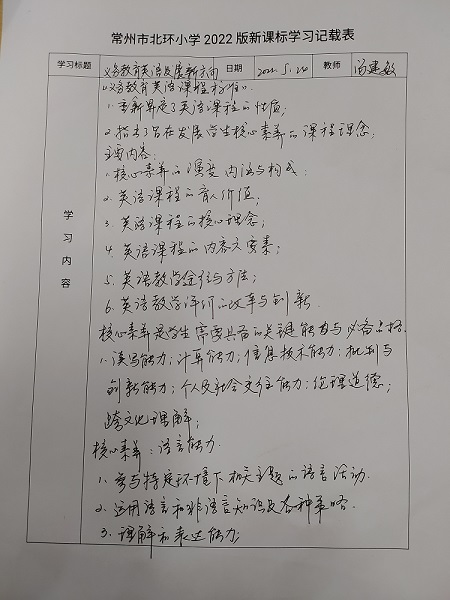 常州市北环小学2022版新课标学习记载表
学习标题 义务教育英语发展新方向 日期 2022.5.20 教师
学习内容
《义务教育英语课程标准》.
1. 重新界定了英语课程的性质;
2. 指出了旨在发展学生核心素养的课程理念;
主要内容:
1. 核心素养的演变 内涵与构成;
2. 英语课程的育人价值;
3. 英语课程的核心理念;
4. 英语课程的内容六要素;
5. 英语教学途径与方法;
6. 英语教学评价的改革与创新.
核心素养是学生需要具备的关键能力与必备品格.
1. 读写能力;计算能力;信息技术能力;批判与
创新能力;个人及社会交往能力;伦理道德;
跨文化理解;
核心素养:语言能力.
1. 参与特定环境下相关主题的语言活动.
2. 运用语言和非语言知识及各种策略.
3. 理解和表达能力